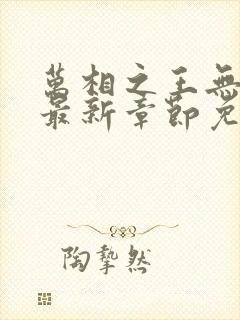 萬相之王無
最新章節免
陶摯然